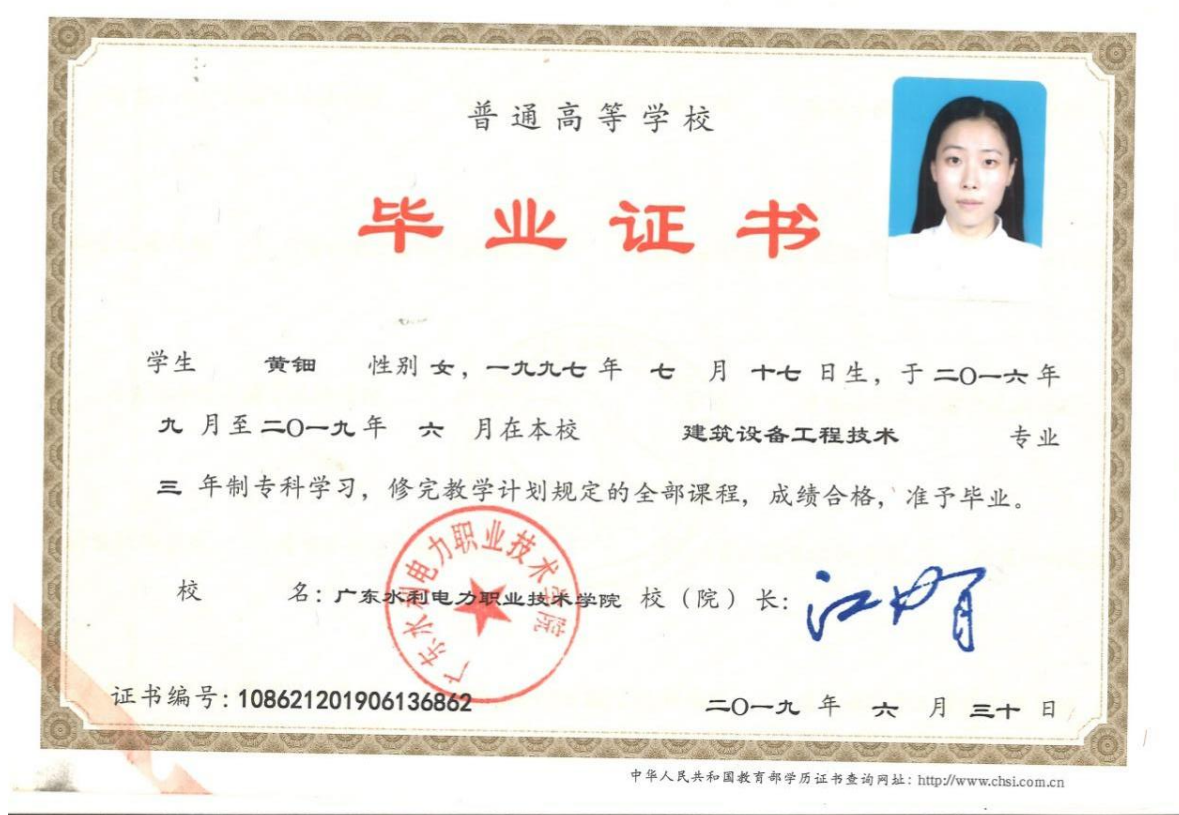 普通高等学校
毕业证书
学生 黄钿 性别 女，一九九七 年 七 月 十七 日生，于 二〇一六 年
九 月至 二〇一九 年 六 月在本校 建筑设备工程技术 专业
三 年制专科学习，修完教学计划规定的全部课程，成绩合格，准予毕业。
校 名：广东水利电力职业技术学院 校（院）长：
广东水利电力职业技术学院
证书编号：108621201906136862 二〇一九 年 六 月 三十 日
中华人民共和国教育部学历证书查询网址：http://www.chsi.com.cn